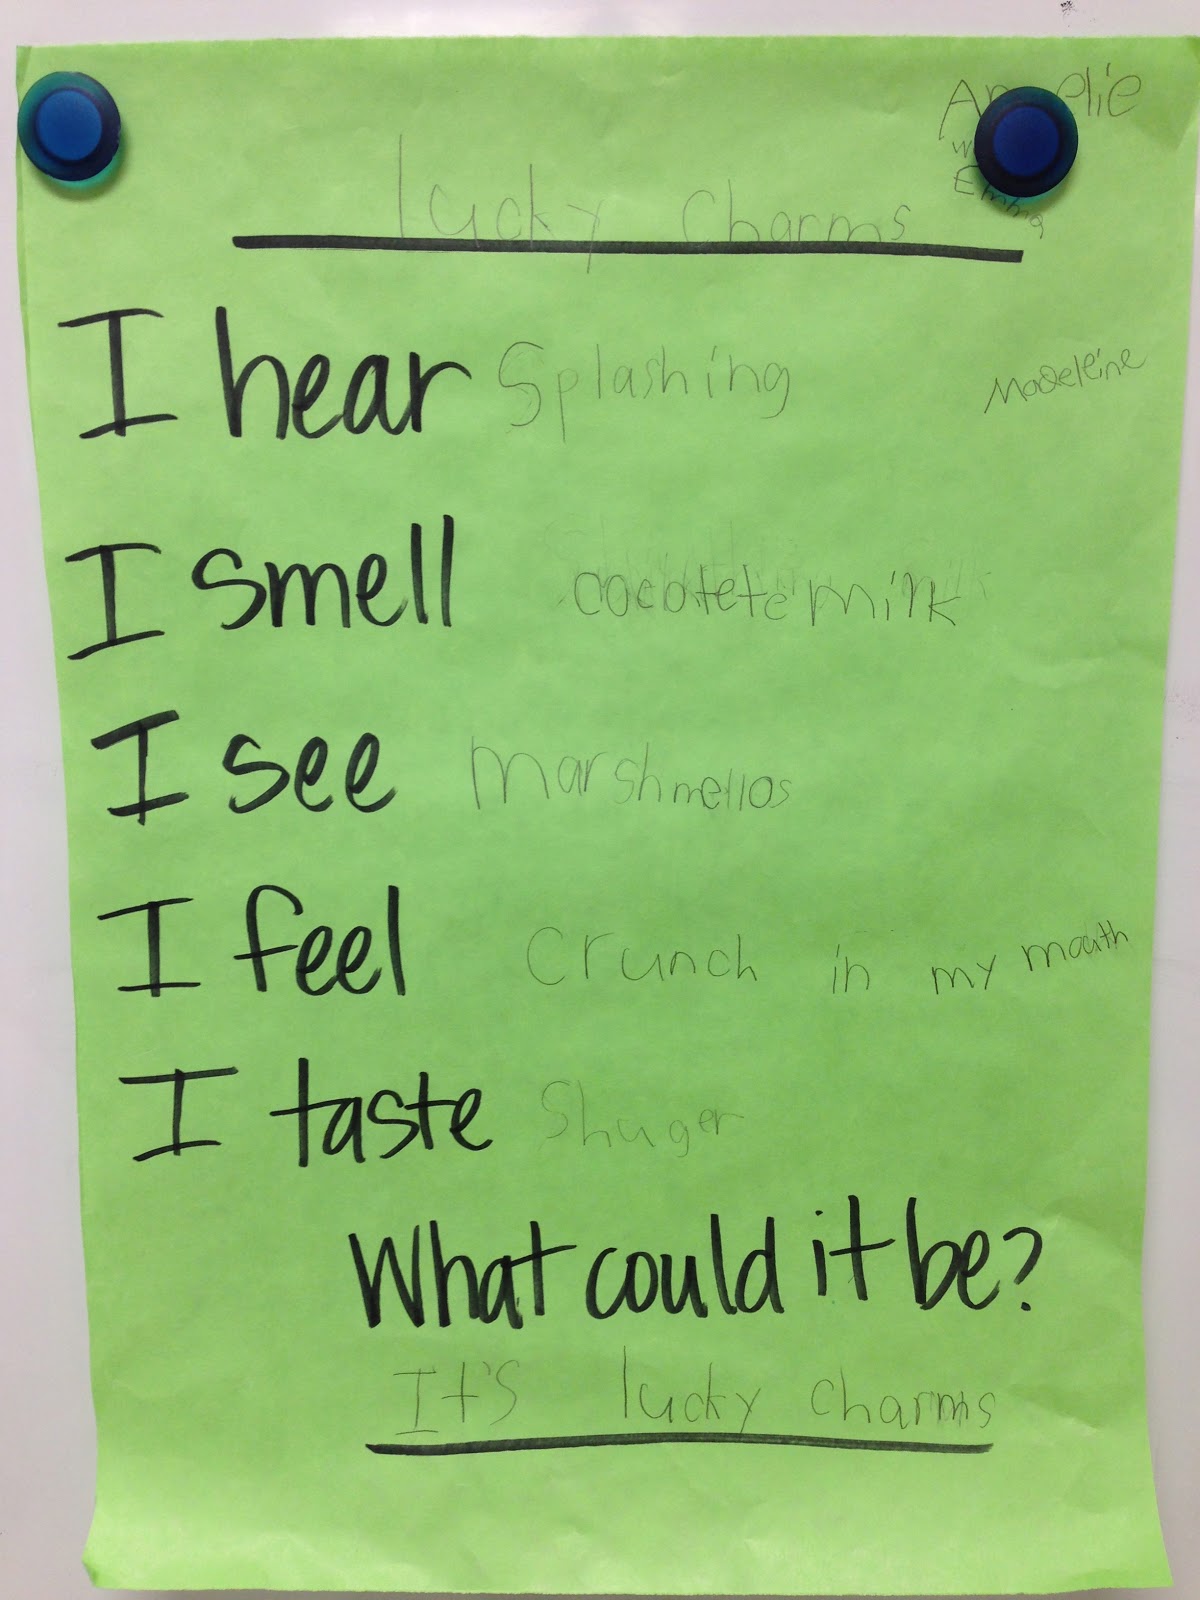 Emma
lucky charms
I hear Splashing
Madeleine
I smell cocotete milk
I see marshmellos
I feel crunch in my mouth
I taste Shuger
What could it be?
It's lucky charms